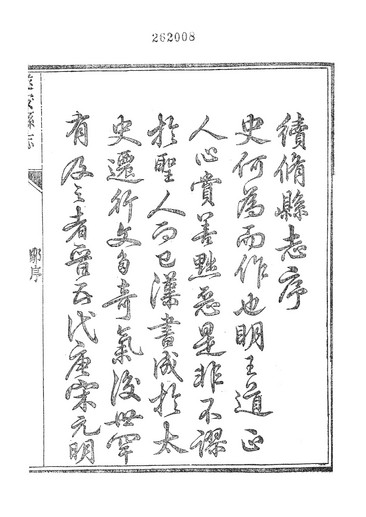 262008
續脩縣志序
史何為而作也明王道正
人心賞善黜惡是非不謬
於聖人而已漢書成於太
史遷行文多奇氣後世罕
有及之者晉五代唐宋元明
縣志
序